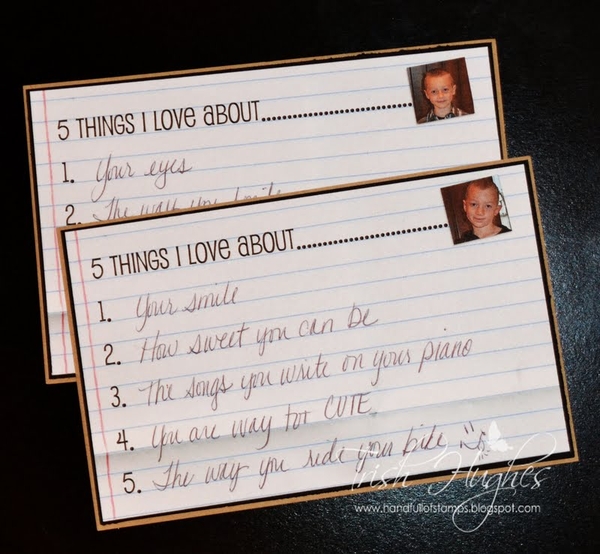 5 THINGS I LOVE ABOUT....................................
1. Your eyes
2. The way you smile
5 THINGS I LOVE ABOUT....................................
1. Your smile
2. How sweet you can be
3. The songs you write on your piano
4. You are way too CUTE
5. The way you ride your bike
Trish Hughes
www.handfullofstamps.blogspot.com